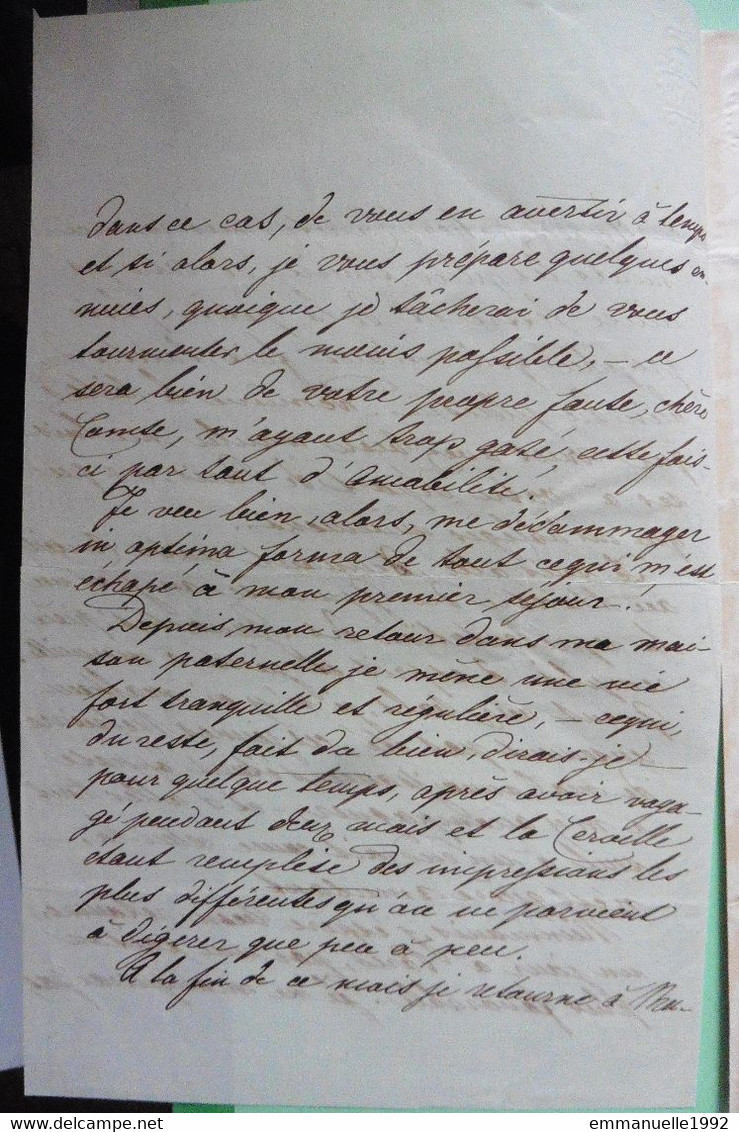 dans ce cas, de vous en avertir à temps
et si alors, je vous prépare quelques en-
nuies, quoique je tâcherai de vous
tourmenter le moins possible, – ce
sera bien de votre propre faute, chère
Comte, m'ayant trop gaté cette fois-
ci par tant d'amabilité.
Je veu bien, alors, me dédommager
in optima forma de tout cequi m'est
échapé à mon premier séjour!
Depuis mon retour dans ma mai-
son paternelle je mène une vie
fort tranquille et régulière, – cequi,
du reste, fait du bien, dirais-je
pour quelque temps, après avoir voya-
gé pendant deux mois et la Cervelle
étant remplise des impressions les
plus différentes qu'on ne parvient
à digerer que peu à peu.
A la fin de ce mois je retourne à
emmanuelle1992